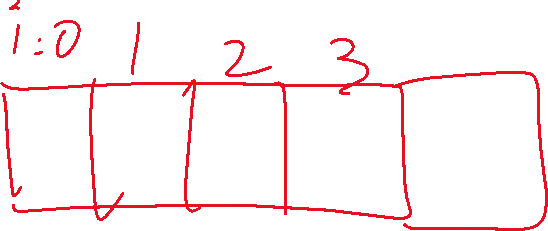 i:0 1 2 3